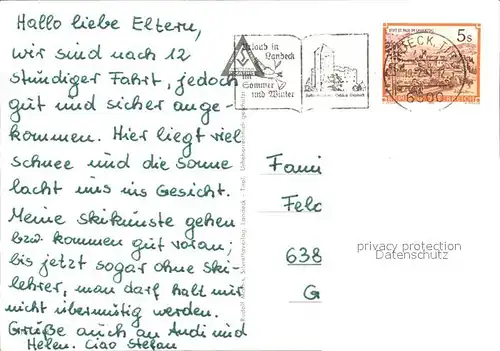 Hallo liebe Eltern,
wir sind nach 12
stündiger Fahrt, jedoch
gut und sicher ange-
kommen. Hier liegt viel
schnee und die Sonne
lacht uns ins Gesicht.
Meine skikünste gehen
bzw. kommen gut voran;
bis jetzt sogar ohne ski-
lehrer, man darf halt nur
nicht übermütig werden.
Grüße auch an Andi und
Helen. Ciao Stefan
Urlaub in
Landeck
im
Sommer
und Winter
5s
LANDECK, TIROL
6500
Fami
Feld
638
G
privacy protection
Datenschutz